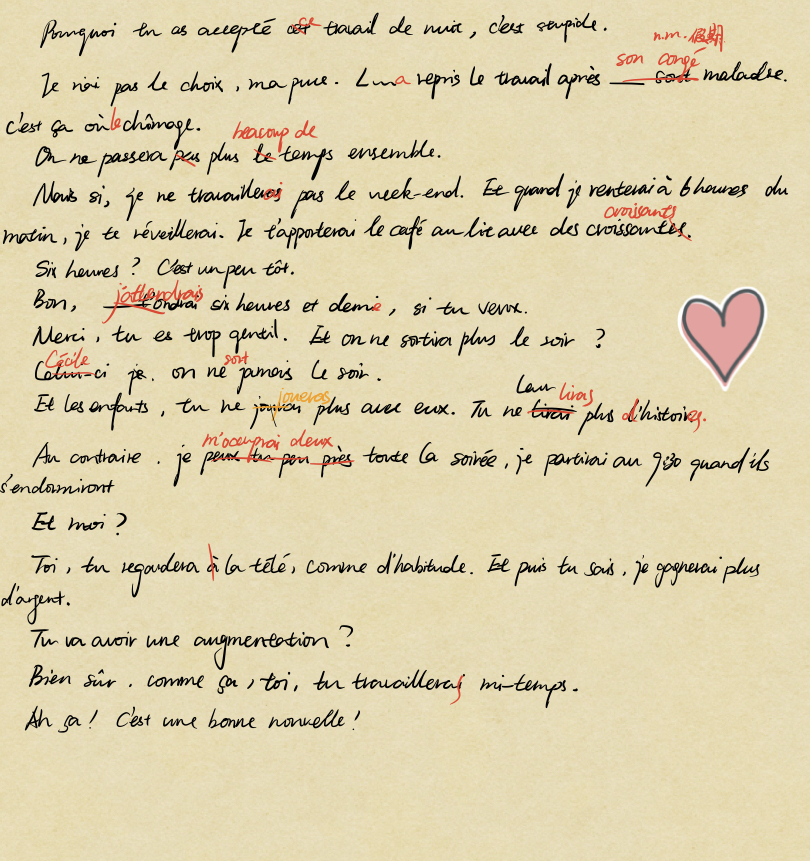 Pourquoi tu as accepté ce travail de nuit, c'est stupide.
n.m. 假期
son congé
Je n'ai pas le choix, ma puce. L a repris le travail après maladie.
c'est ça où le chômage.
beacoup de
On ne passera pas plus le temps ensemble.
Mais si, je ne travaillerai pas le week-end. Et quand je renterai à 6 heures du
croissants
matin, je te réveillerai. Je t'apporterai le café au lit avec des croissantes.
Six heures ? C'est un peu tôt.
j'attendrais
Bon, six heures et demie, si tu veux.
Merci, tu es trop gentil. Et on ne sortira plus le soir ?
Cécile sort
Celui-ci je. on ne jamais le soir.
joueras Leur liras
Et les enfants, tu ne plus avec eux. Tu ne lirai plus d'histoires.
m'occuprai d'eux
Au contraire. je peux tu peu près toute la soirée, je partirai au 9:30 quand ils
s'endormiront
Et moi ?
Toi, tu regardera à la télé, comme d'habitude. Et puis tu sais, je gagnerai plus
d'argent.
Tu va avoir une augmentation ?
Bien sûr. comme ça, toi, tu travailleras mi-temps.
Ah ça ! C'est une bonne nouvelle !